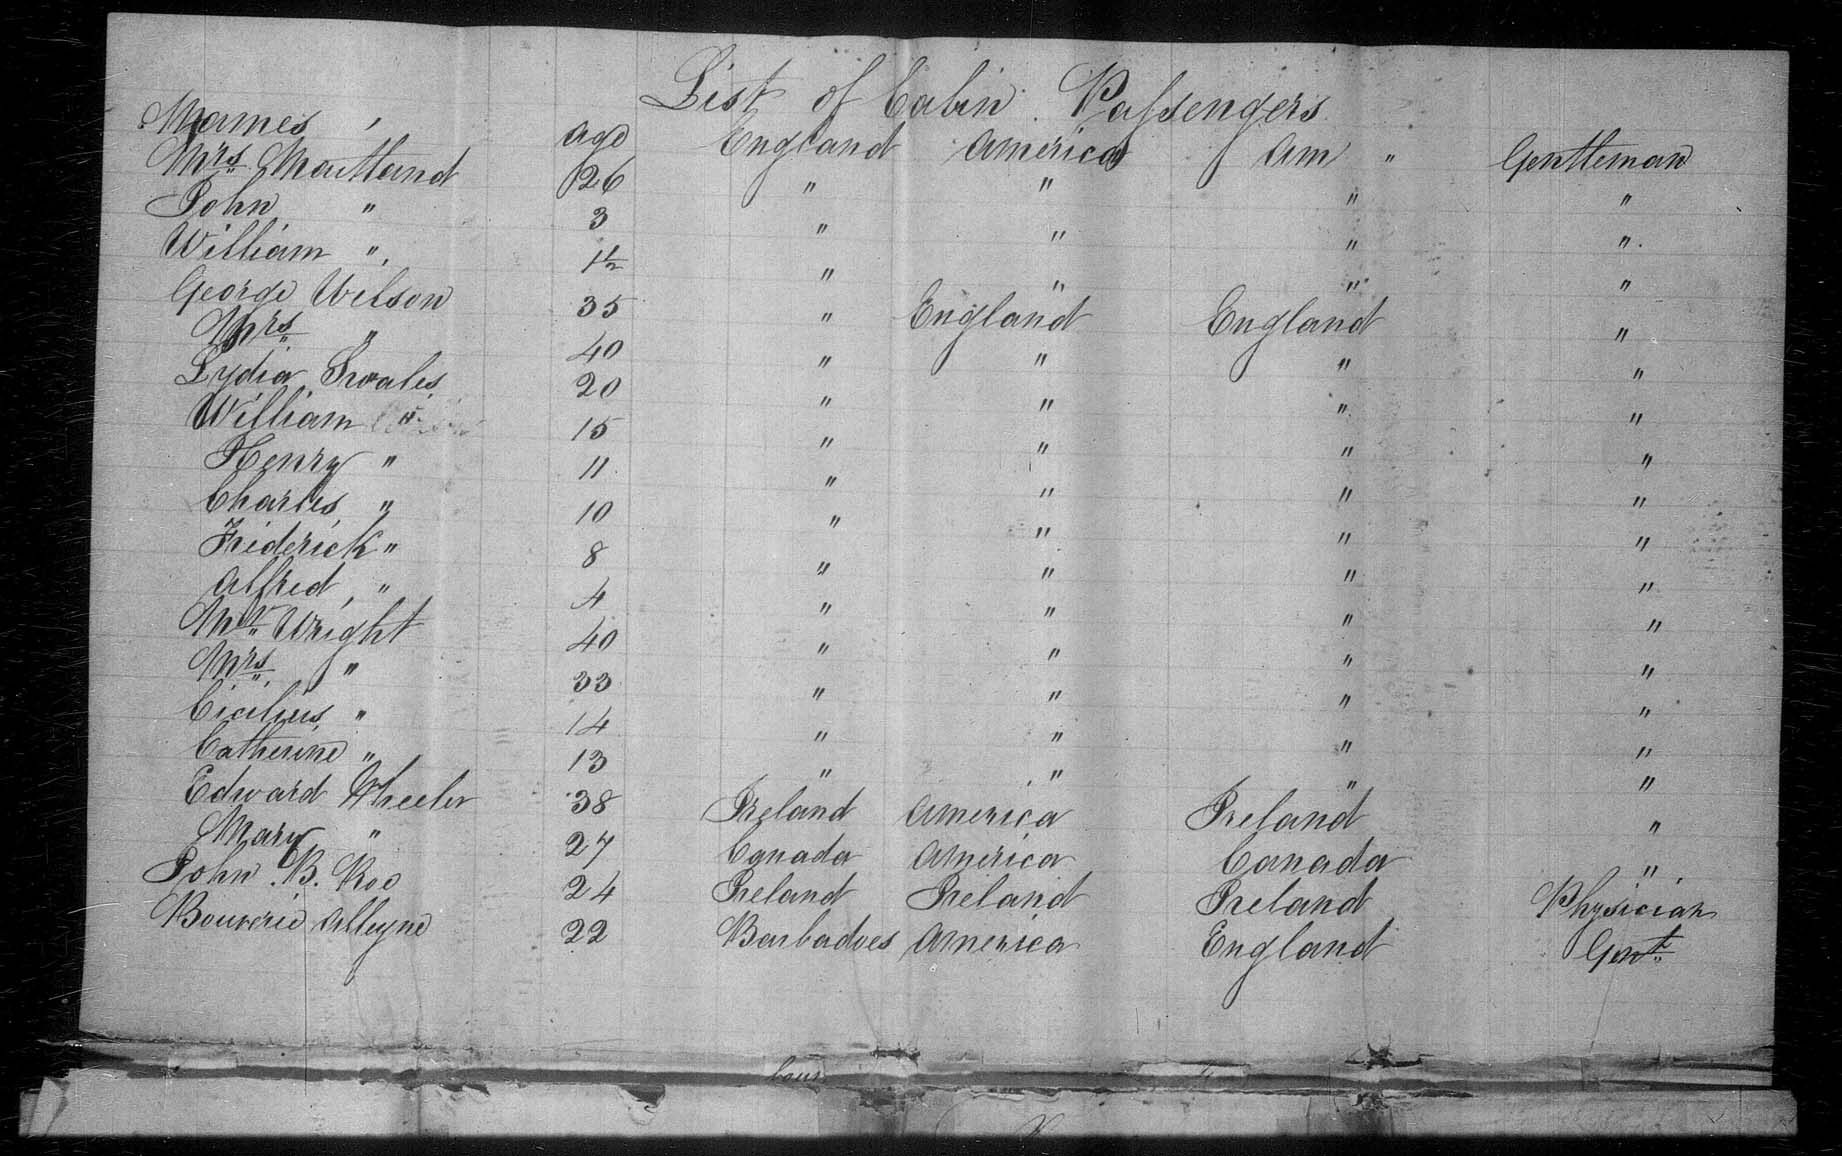 List of Cabin Passengers
Names age England America Am " Gentleman
Mrs Maitland 26 " " " "
John " 3 " " " "
William " 1½ " " " "
George Wilson 35 " England England "
Mrs " 40 " " " "
Lydia Swales 20 " " " "
William " 15 " " " "
Henry " 11 " " " "
Charles " 10 " " " "
Friderick " 8 " " " "
Alfred " 4 " " " "
Mr Wright 40 " " " "
Mrs " 33 " " " "
" 14 " " " "
Catherine " 13 " " " "
Edward Wheeler 38 Ireland America Ireland "
Mary " 27 Canada America Canada "
John B. Roe 24 Ireland Ireland Ireland Physician
Bouverie Alleyne 22 Barbadoes America England Gent